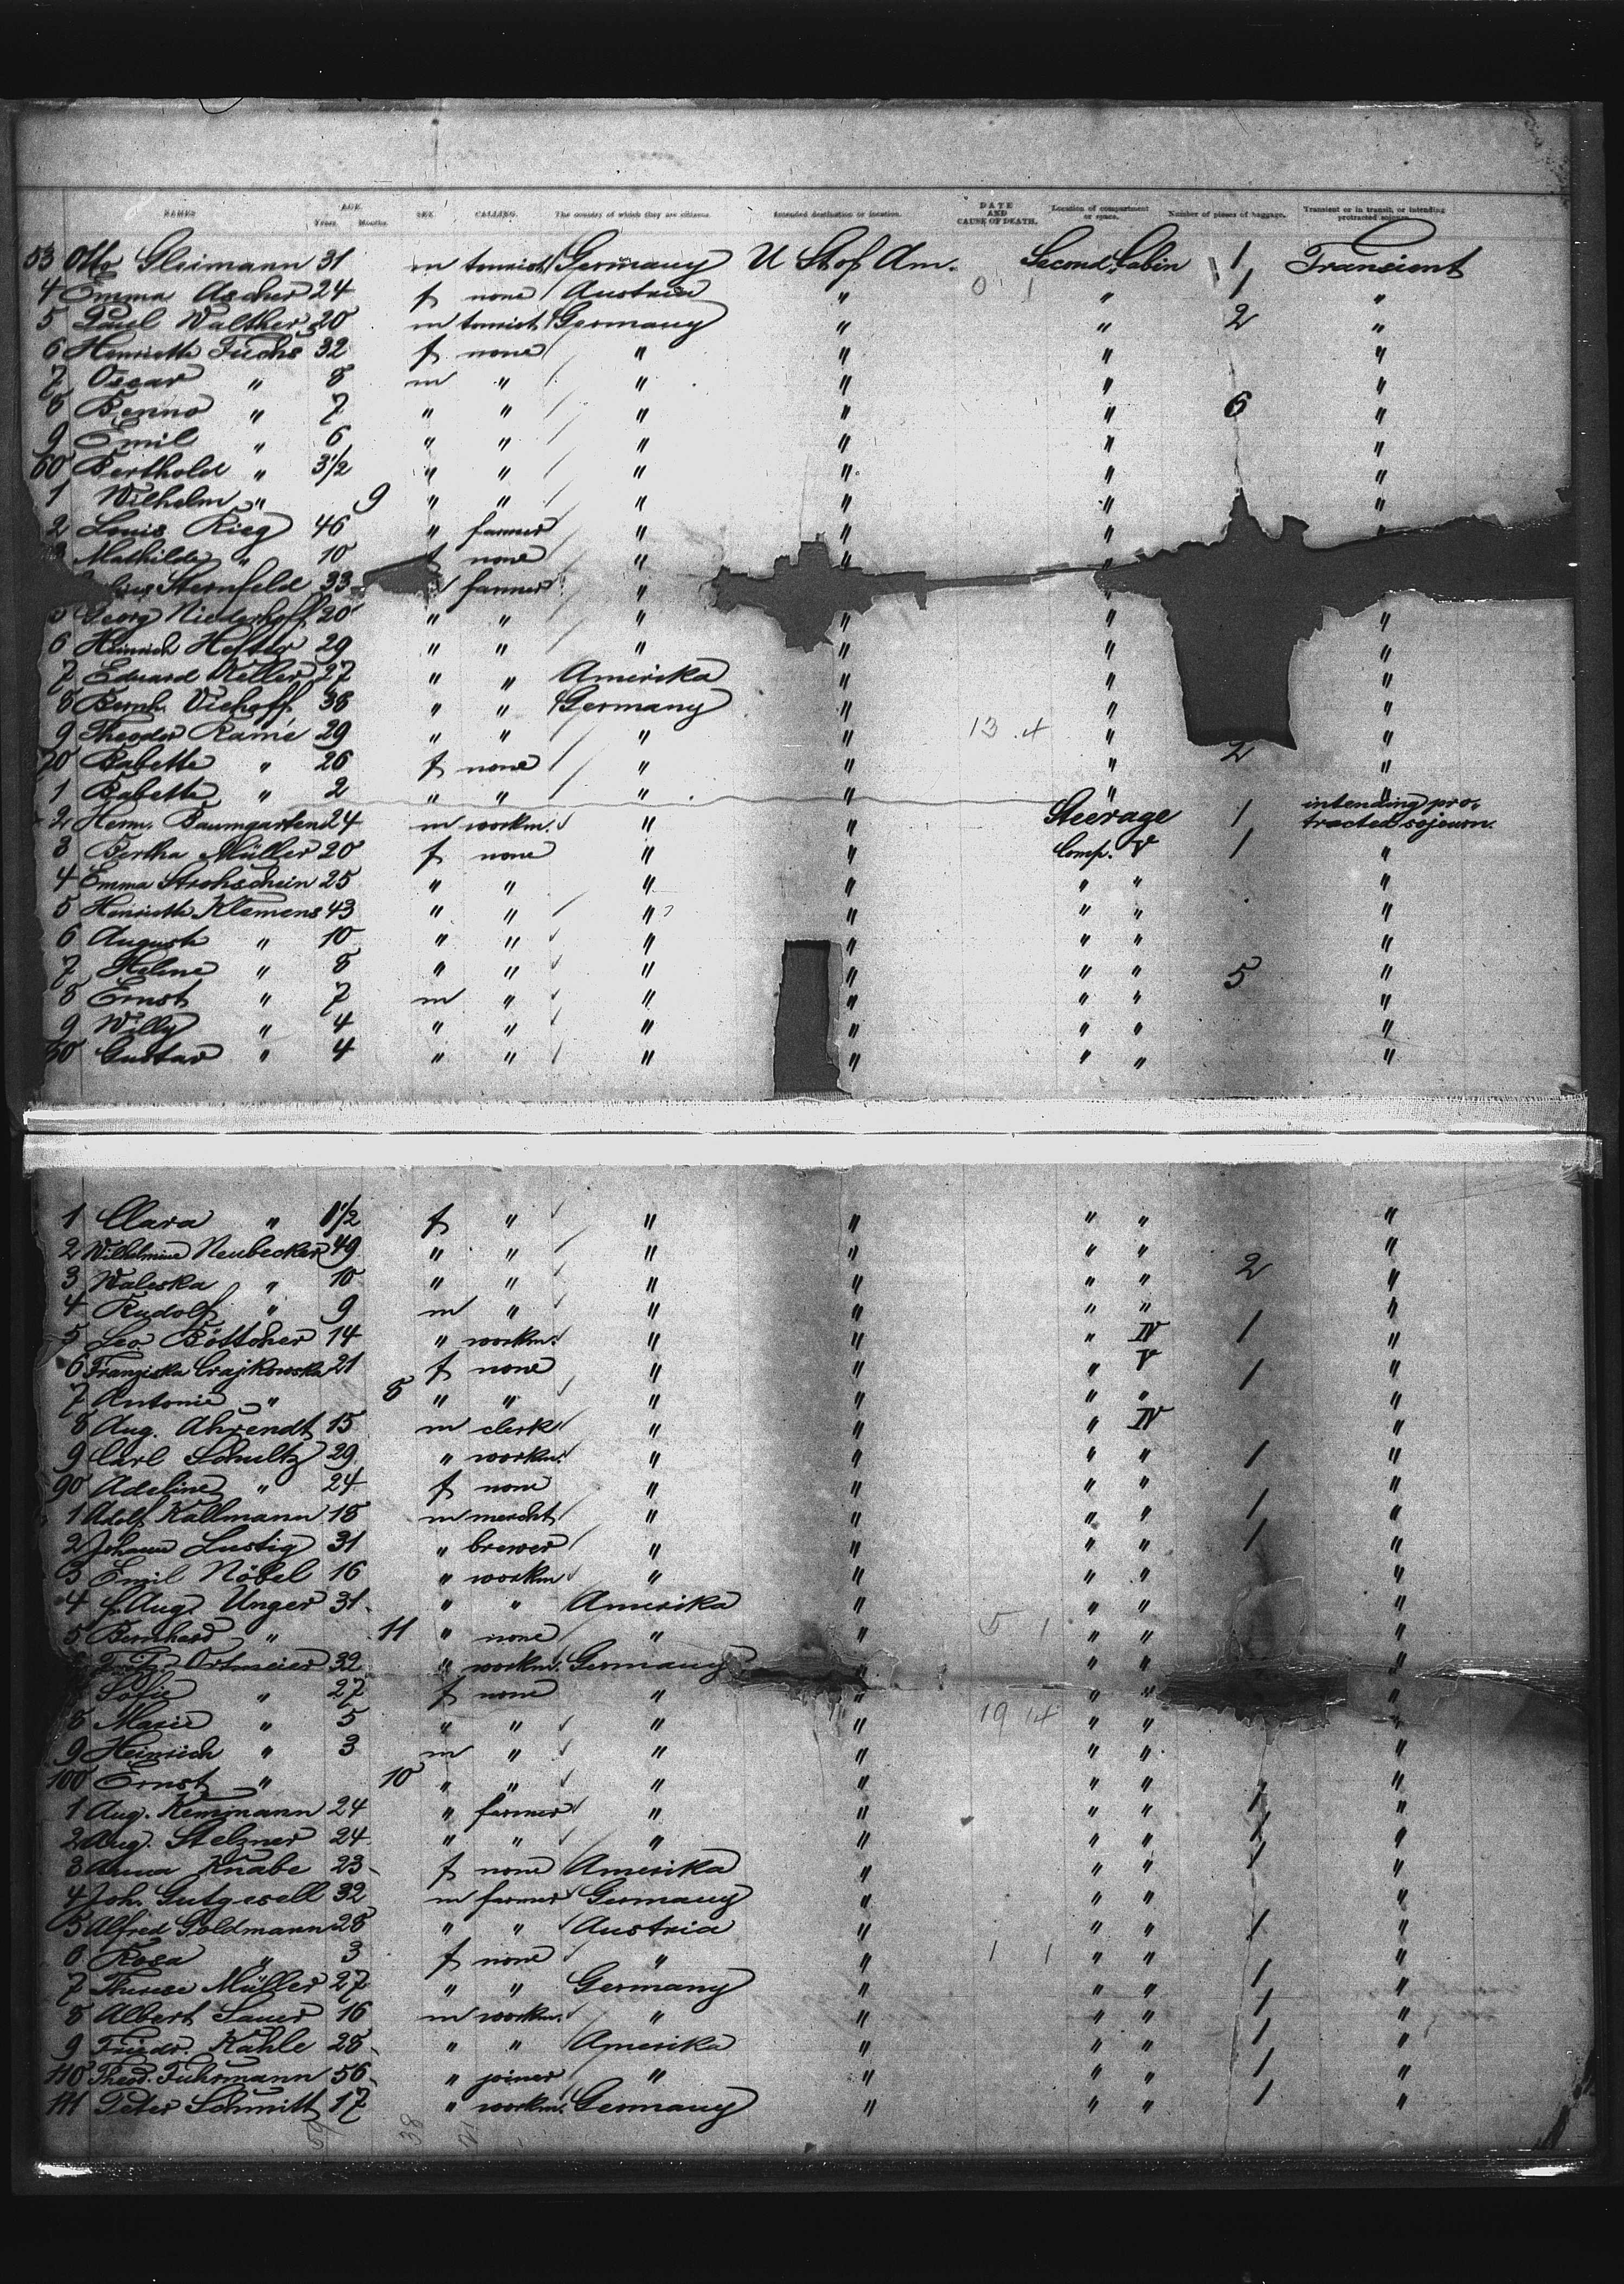 NAMES AGE. Years. Months. SEX. CALLING. The country of which they are citizens. Intended destination or location. DATE AND CAUSE OF DEATH. Location of compartment or space. Number of pieces of baggage. Transient or in transit, or intending protracted sojourn.
53 Otto Gleimann 31 m tourist Germany U St of Am. Second Cabin 1 Transient
4 Emma Ascher 24 f none Austria " 0 1 " 1 "
5 Paul Walther 20 m tourist Germany " " 2 "
6 Henriette Fuchs 32 f none " " " "
7 Oscar " 8 m " " " " "
8 Benno " 7 " " " " " 6 "
9 Emil " 6 " " " " " "
60 Berthold " 3 1/2 " " " " " "
1 Wilhelm " 9 " " " " " "
2 Louis Rieg 46 " farmer " " " "
Mathilde " 10 f none " " "
Sternfeld 33 farmer " "
Georg Niederhoff 20 " " " " " "
6 Heinrich Hefter 29 " " " " " "
7 Eduard Keller 27 " " Amerika " " "
8 Bernh. Viehoff 38 " " Germany " " "
9 Theodor Ramé 29 " " " " 13 4 " "
70 Babette " 26 f none " " " 2 "
1 Babette " 2 " " " " " "
2 Herm. Baumgarten 24 m workm. " " Steerage 1 intending pro-
tracted sojourn.
3 Bertha Müller 20 f none " " Comp. V 1 "
4 Emma Strohschein 25 " " " " " " "
5 Henriette Klemens 43 " " " " " " "
6 Auguste " 10 " " " " " " "
7 Helene " 8 " " " " " " 5 "
8 Ernst " 7 m " " " " " "
9 Willy " 4 " " " " " " "
80 Gustav " 4 " " " " " " "
1 Clara " 1 1/2 f " " " " " "
2 Wilhelmine Neubecker 49 " " " " " " "
3 Waleska " 10 " " " " " " 2 "
4 Rudolf " 9 m " " " " " "
5 Leo Böttcher 14 " workm. " " " IV 1 "
6 Franziska Crajkowska 21 f none " " " V 1 "
7 Antonie " 8 " " " " " " "
8 Aug. Ahrendt 15 m clerk " " " IV "
9 Carl Schultz 29 " workm. " " " " 1 "
90 Adeline " 24 f none " " " " "
1 Adolf Kallmann 18 m mercht " " " " 1 "
2 Johann Lustig 31 " brewer " " " " 1 "
3 Emil Nöbel 16 " workm " " " " "
4 Aug. Unger 31 " " Amerika " " " "
5 Bernhard " 11 " none " " 5 1 " " "
Ortmeier 32 " workm. Germany " " " "
Sofie " 27 f none " " " " "
8 Marie " 5 " " " " 19 14 " " "
9 Heinrich " 3 m " " " " " "
100 Ernst " 10 " " " " " " "
1 Aug. Kemmann 24 " farmer " " " " 1 "
2 Aug. Stelzner 24 " " " " " " 1 "
3 Anna Knabe 23 f none Amerika " " " 1 "
4 Joh. Gutgesell 32 m farmer Germany " " " "
5 Alfred Goldmann 28 " " Austria " " " 1 "
6 Rosa " 3 f none " " 1 1 " " "
7 Therese Müller 27 " " Germany " " " 1 "
8 Albert Sauer 16 m workm. " " " " 1 "
9 Friedr. Kahle 28 " " Amerika " " " 1 "
110 Theod. Fuhrmann 56 " joiner " " " " 1 "
111 Peter Schmitt 17 " workm. Germany " " " 1 "
38